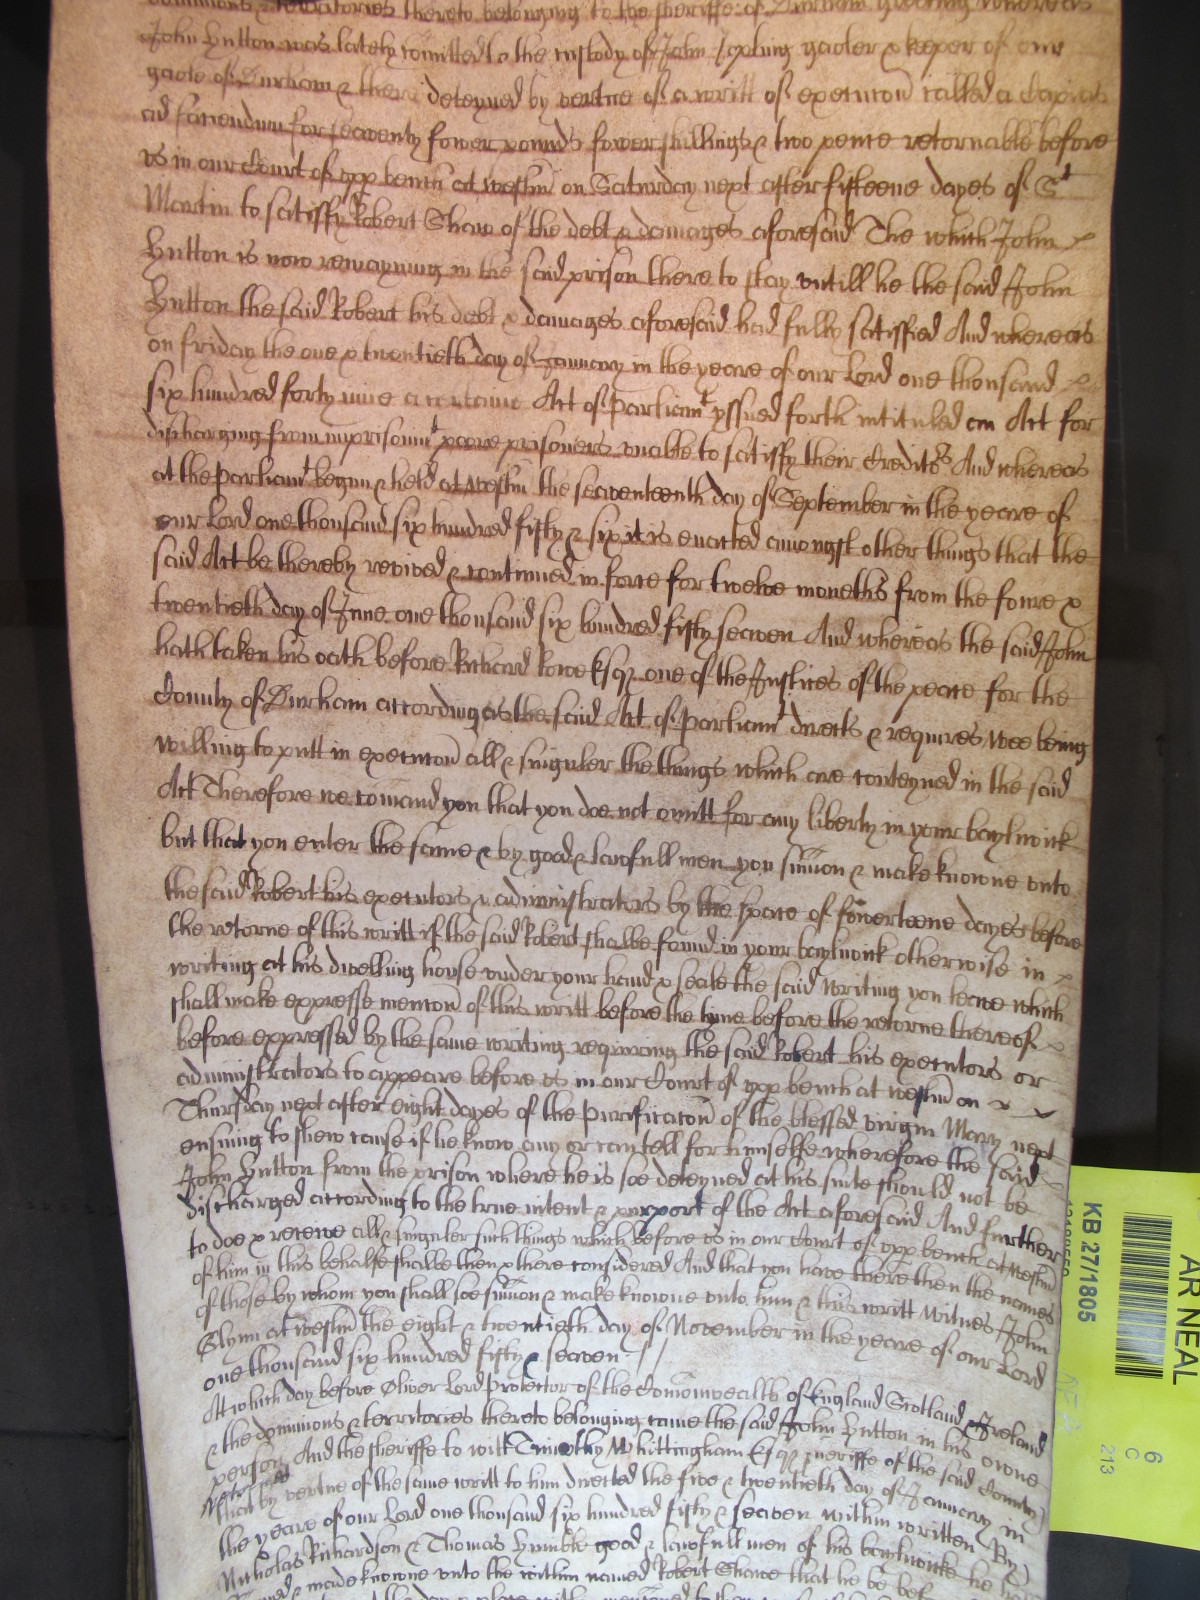 dominions & territories thereto belonging to the sheriffe of Durham greeting whereas
John Hutton was lately comitted to the custody of John Joplling gaoler & keeper of our
gaole of Durham & there deteyned by vertue of a writt of execucoñ called a Capias
ad faciendum for seaventy fower pounds fower shillings & two pence retornable before
vs in our Court of vpp bench at Westm̃ on Saturday next after fifteene dayes of St
Martin to satisfy Robert Shaw of the debt & damages aforesaid The which John
Hutton is now remayning in the said prison there to stay vntill he the said John
Hutton the said Robert his debt & damages aforesaid had fully satisfied And whereas
on friday the one & twentieth day of in the yeare of our Lord one thousand
six hundred forty nine a certaine Act of Parliamt yssued forth intituled an Act for
discharging from imprisonmt poore prisoners vnable to satisfy their Creditrs And whereas
at the Parliamt begun & held at Westm̃ the seaventeenth day of September in the yeare of
our Lord one thousand six hundred fifty & six it is enacted amongst other things that the
said Act be thereby revived & continued in force for twelve moneths from the foure &
twentieth day of June one thousand six hundred fifty seaven And whereas the said John
hath taken his oath before Richard Rowe Esqr one of the Justices of the peace for the
County of Durham according as the said Act of Parliamt directs & requires Wee being
willing to putt in execucoñ all & singuler the things which are conteyned in the said
Act Therefore we com̃and you that you doe not omitt for any liberty in your bayliwick
but that you enter the same & by good & lawfull men you sum̃on & make knowne vnto
the said Robert his executors & administrators by the space of fowerteene dayes before
the retorne of this writt if the said Robert shalbe found in your bayliwick otherwise in
writing at his dwelling house vnder your hand & seale the said writing you leave which
shall make expresse mencoñ of this writt before the tyme before the retorne thereof
before expressed by the same writing requiring the said Robert his executors or
administrators to appeare before vs in our Court of vpp bench at Westm̃ on
Thursday next after eight dayes of the Purificacoñ of the blessed virgin Mary next
ensuing to shew cause if he know any or can tell for himselfe wherefore the said
John Hutton from the prison where he is soe deteyned at his suite should not be
discharged according to the true intent & purport of the Act aforesaid And further
to doe & receive all & singuler such things which before vs in our Court of vpp bench at Westm̃
of him in this behalfe shalbe then & there considered And that you have there then the names
of those by whom you shall soe sum̃on & make knowne vnto him & this writt Witnes John
Glynn at Westm̃ the eight & twentieth day of November in the yeare of our Lord
one thousand six hundred fifty & seaven
At which day before Oliver Lord Protector of the Com̃onwealth of England Scotland & Ireland
& the dominions & territories thereto belonging came the said John Hutton in his owne
person And the sheriffe to witt Timothy Whittingham Esqr sheriffe of the said County
retorned that by vertue of the same writt to him directed the five & twentieth day of January in
the yeare of our Lord one thousand six hundred fifty & seaven within written By
Nicholas Richardson & Thomas Humble good & lawfull men of his bayliwicke he
& made knowne vnto the within named Robert Shawe that he be
the day & place within mencoñed
KB 27/1805
AR NEAL
6
C
213